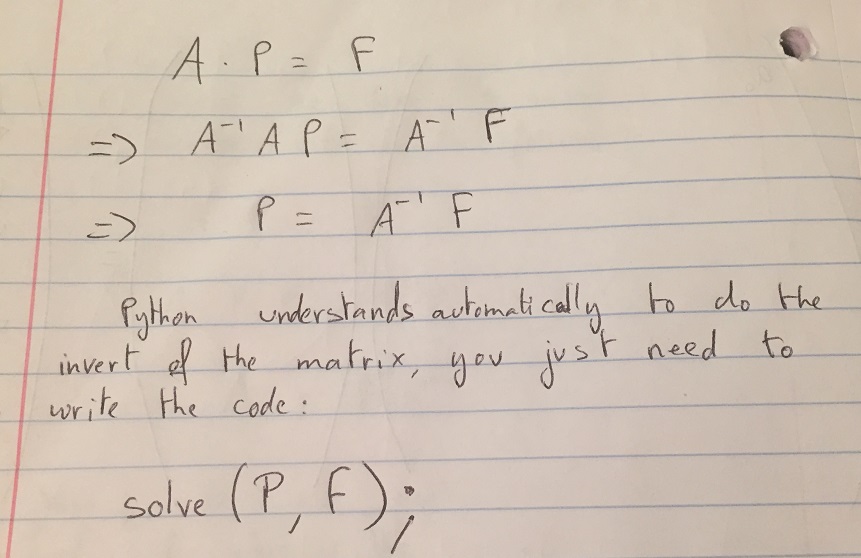 A · P = F
=> A⁻¹ A P = A⁻¹ F
=> P = A⁻¹ F
Python understands automatically to do the
invert of the matrix, you just need to
write the code:
solve (P, F);